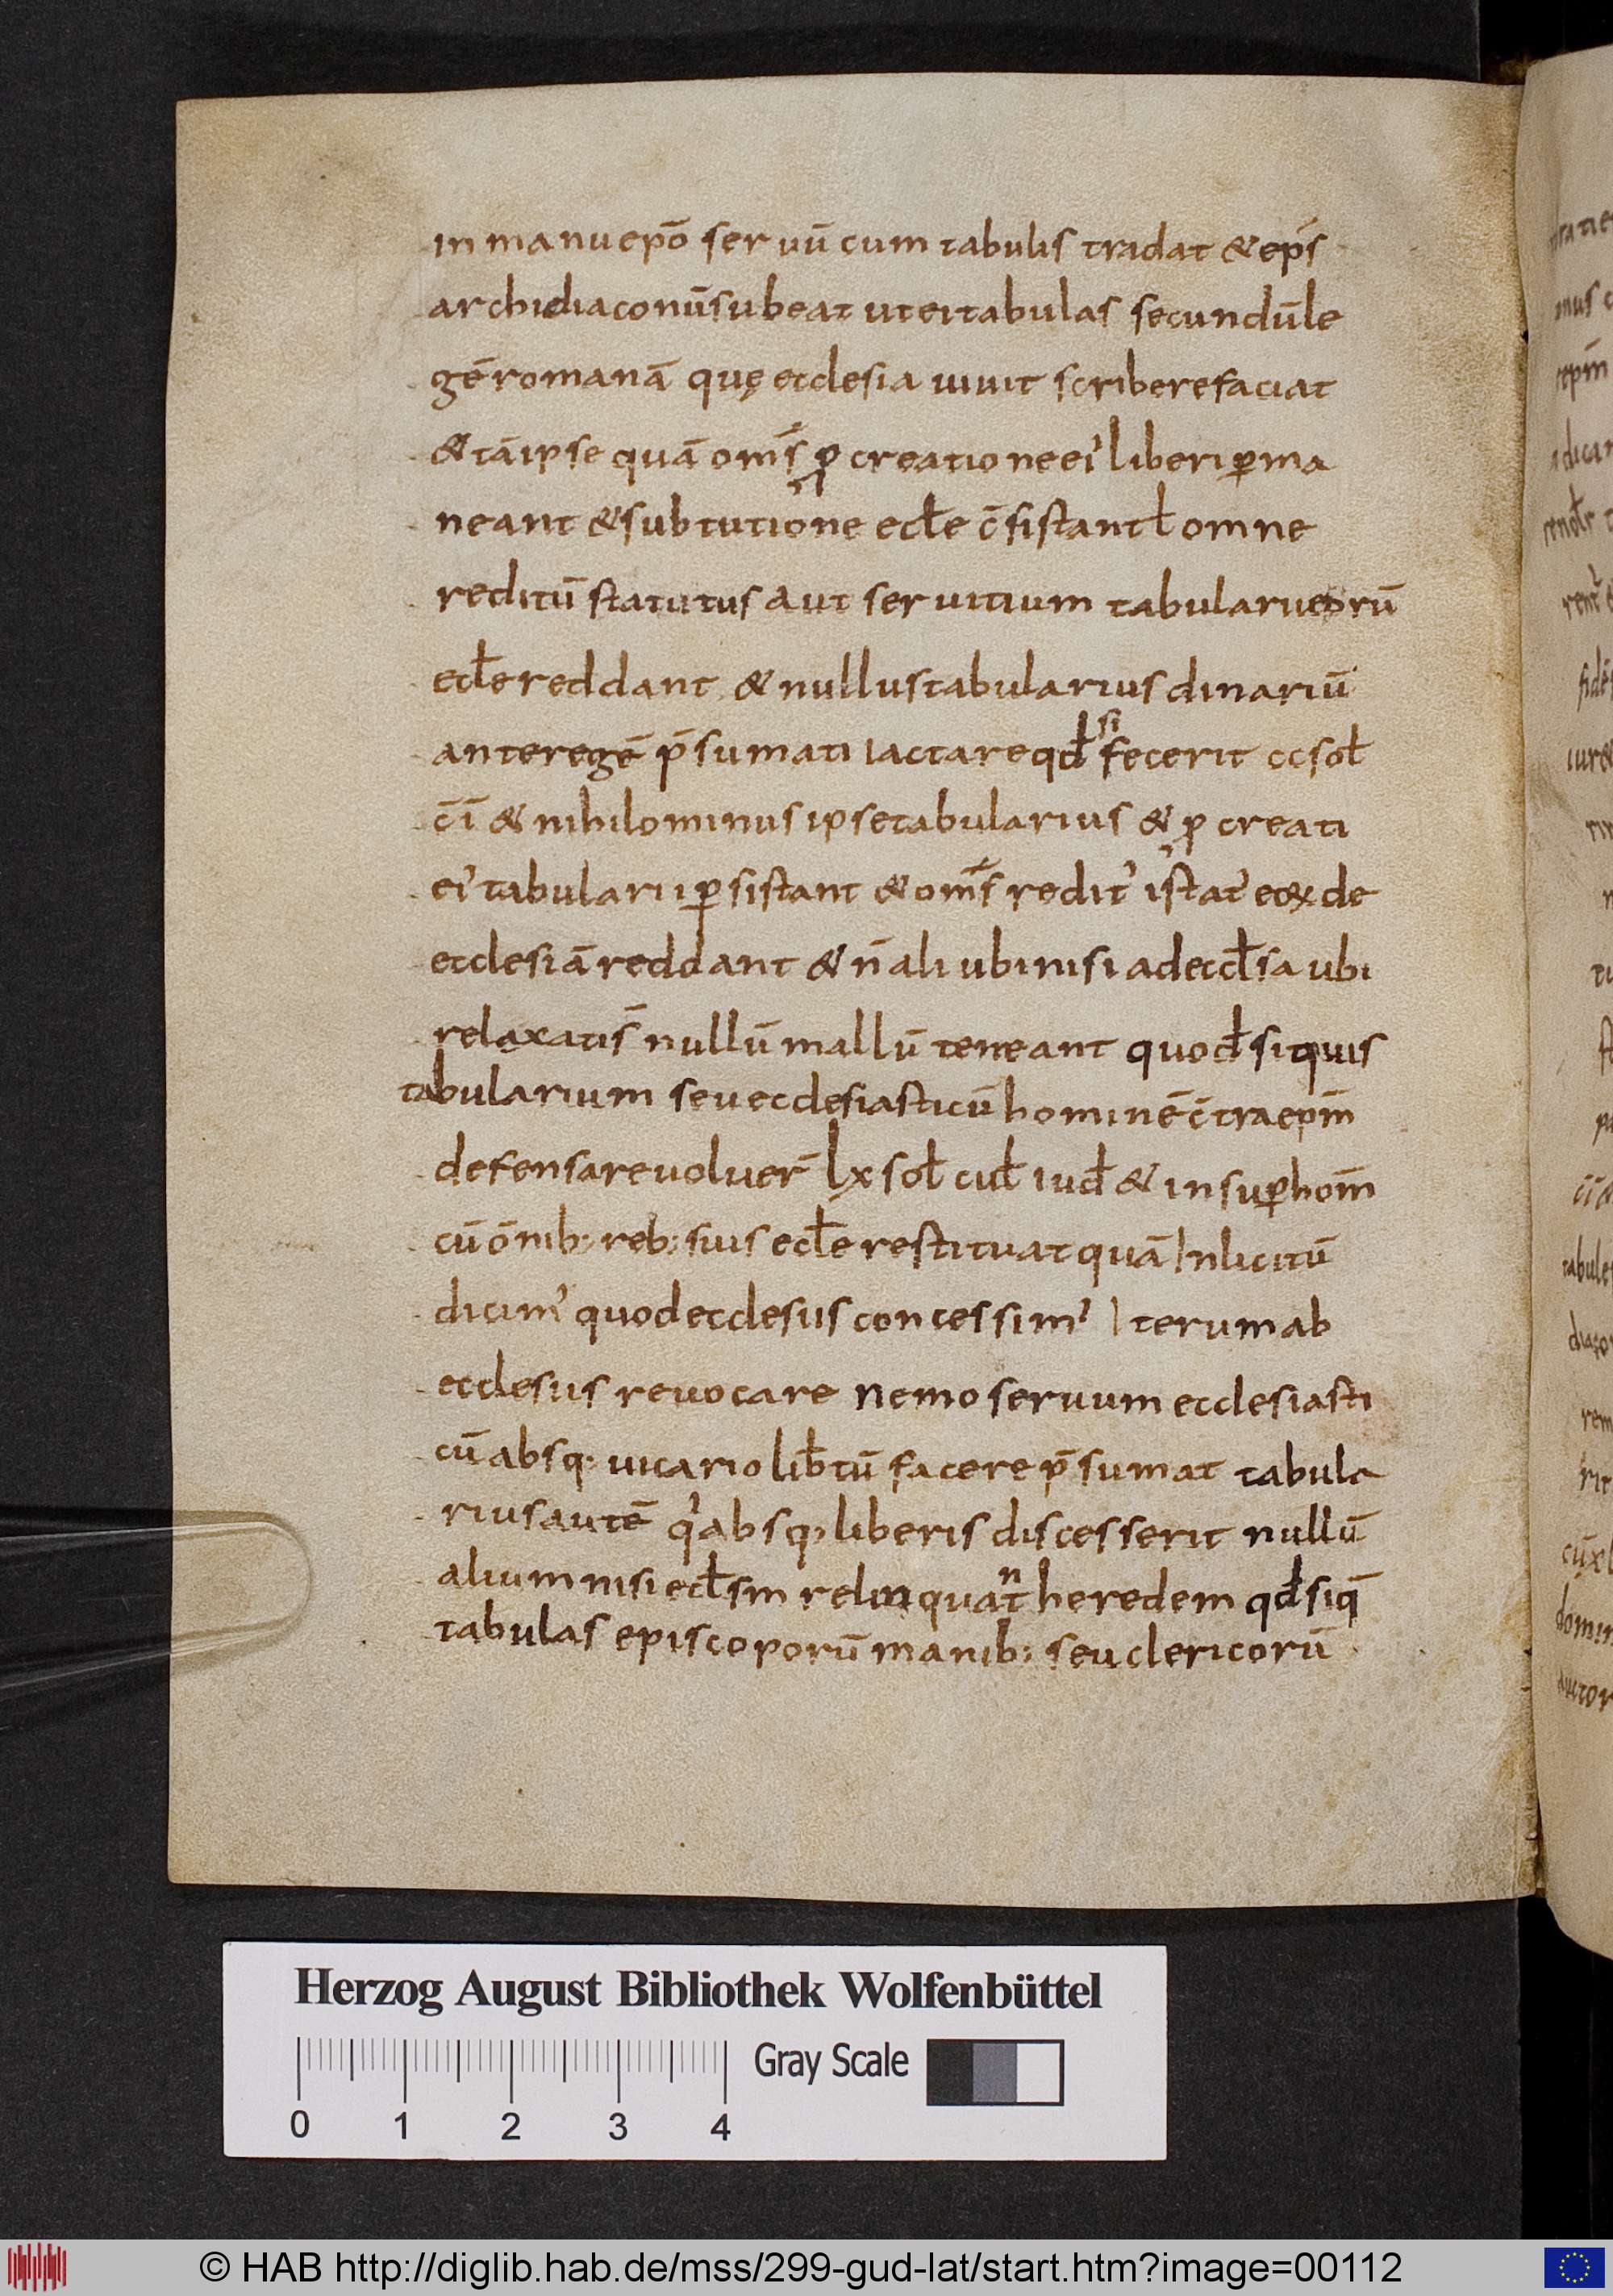 in manu epō seruū cum tabulis tradat & ep̄s
archidiaconū subeat ut ei tabulas secundū le
gē romanā quę ecclesia uiuit scribere faciat
& tā ipse quā om̄s ꝓcreatione ei' liberi ꝑma
neant & sub tutione eccłe c̄sistant ł omne
reditū statutus aut seruitium tabularii eorū
eccłe reddant & nullus tabularius dinariū
ante regē p̄sumati iactare qđ si fecerit cc soł
c̄ī & nihilominus ipse tabularius & ꝓcreati
ei' tabularii ꝑsistant & om̄s redit' istat' eoꝝ de
ecclesiā reddant & n̄ aliubi nisi ad eccłsa ubi
relaxatis̄ nullū mallū teneant quođ si quis
tabularium seu ecclesiasticū hominē c̄tra ep̄m
defensare uoluer̄ lx soł cuł iuđ & insuꝑ hom̄
cū om̄ib; reb; suis eccłe restituat quā Inlicitū
dicim' quod ecclesiis concessim' Iterum ab
ecclesiis reuocare Nemo seruum ecclesiasti
cū absq; uicario lib̄tū facere p̄sumat tabula
rius autē q' absq; liberis discesserit nullū
alium nisi eccłsm relinquant heredem qđ si q̄
tabulas episcoporū manib; seu clericorū
Herzog August Bibliothek Wolfenbüttel
Gray Scale
0 1 2 3 4
© HAB http://diglib.hab.de/mss/299-gud-lat/start.htm?image=00112